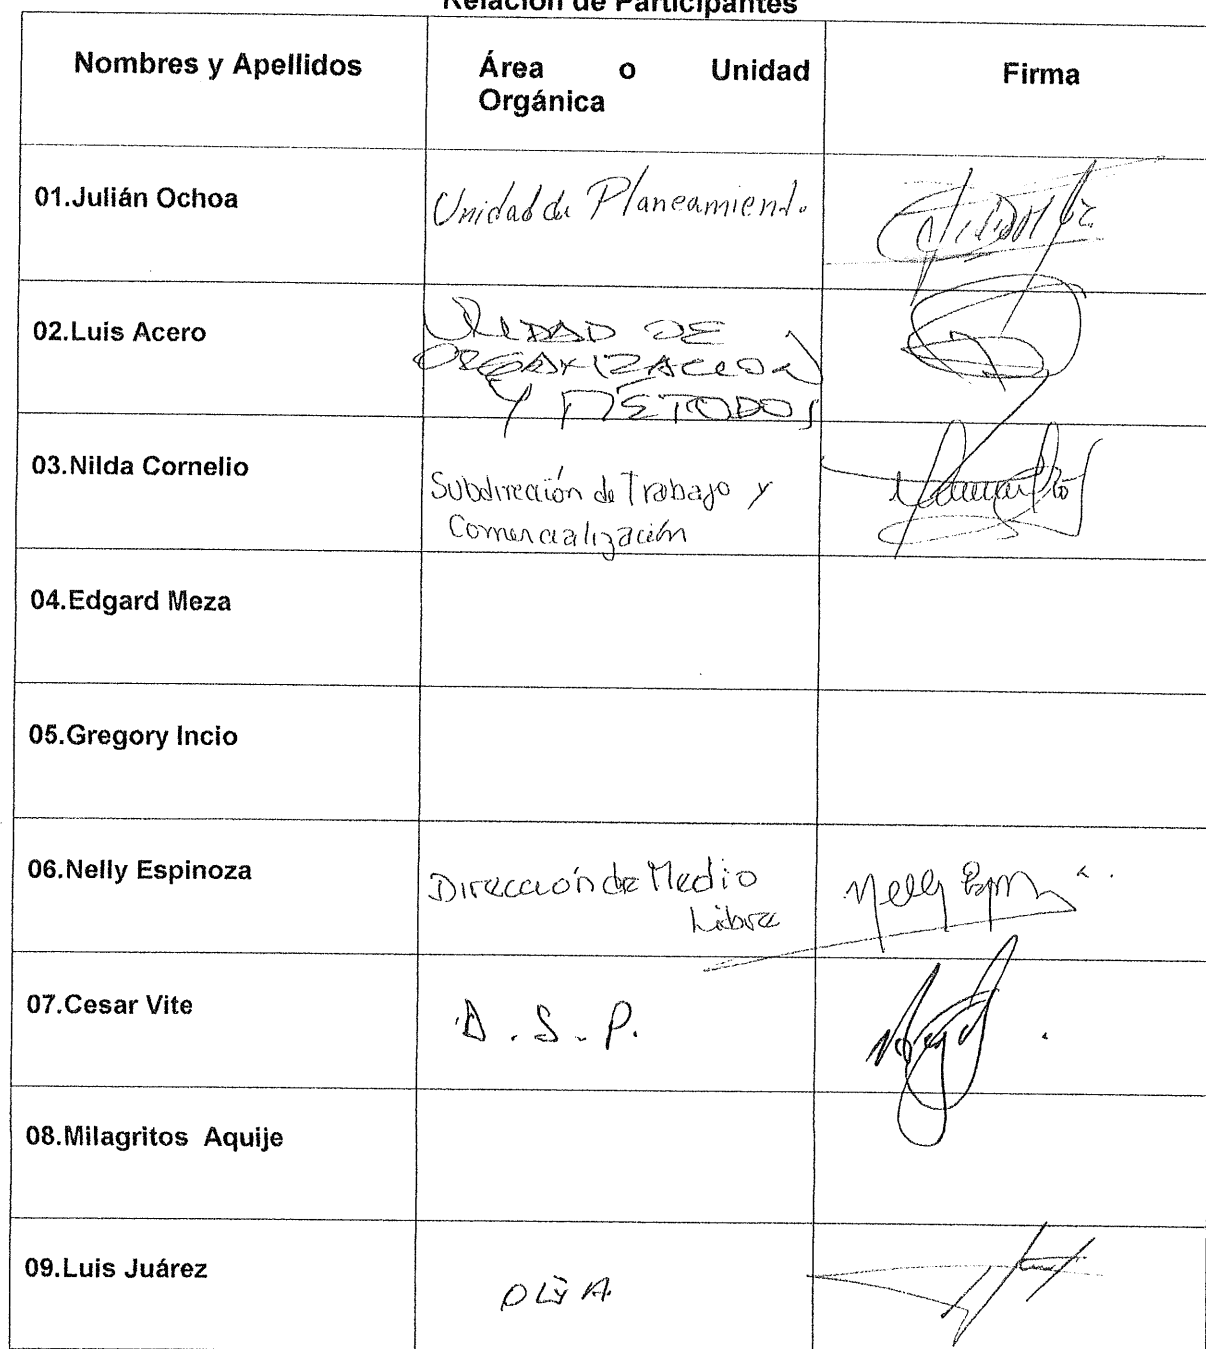 Relación de Participantes
Nombres y Apellidos
Área o Unidad
Orgánica
Firma
01.Julián Ochoa
Unidad de Planeamiento
02.Luis Acero
UNIDAD DE
ORGANIZACION
Y METODOS
03.Nilda Cornelio
Subdirección de Trabajo y
Comercialización
04.Edgard Meza
05.Gregory Incio
06.Nelly Espinoza
Dirección de Medio
Libre
Nelly
07.Cesar Vite
D.S.P.
08.Milagritos Aquije
09.Luis Juárez